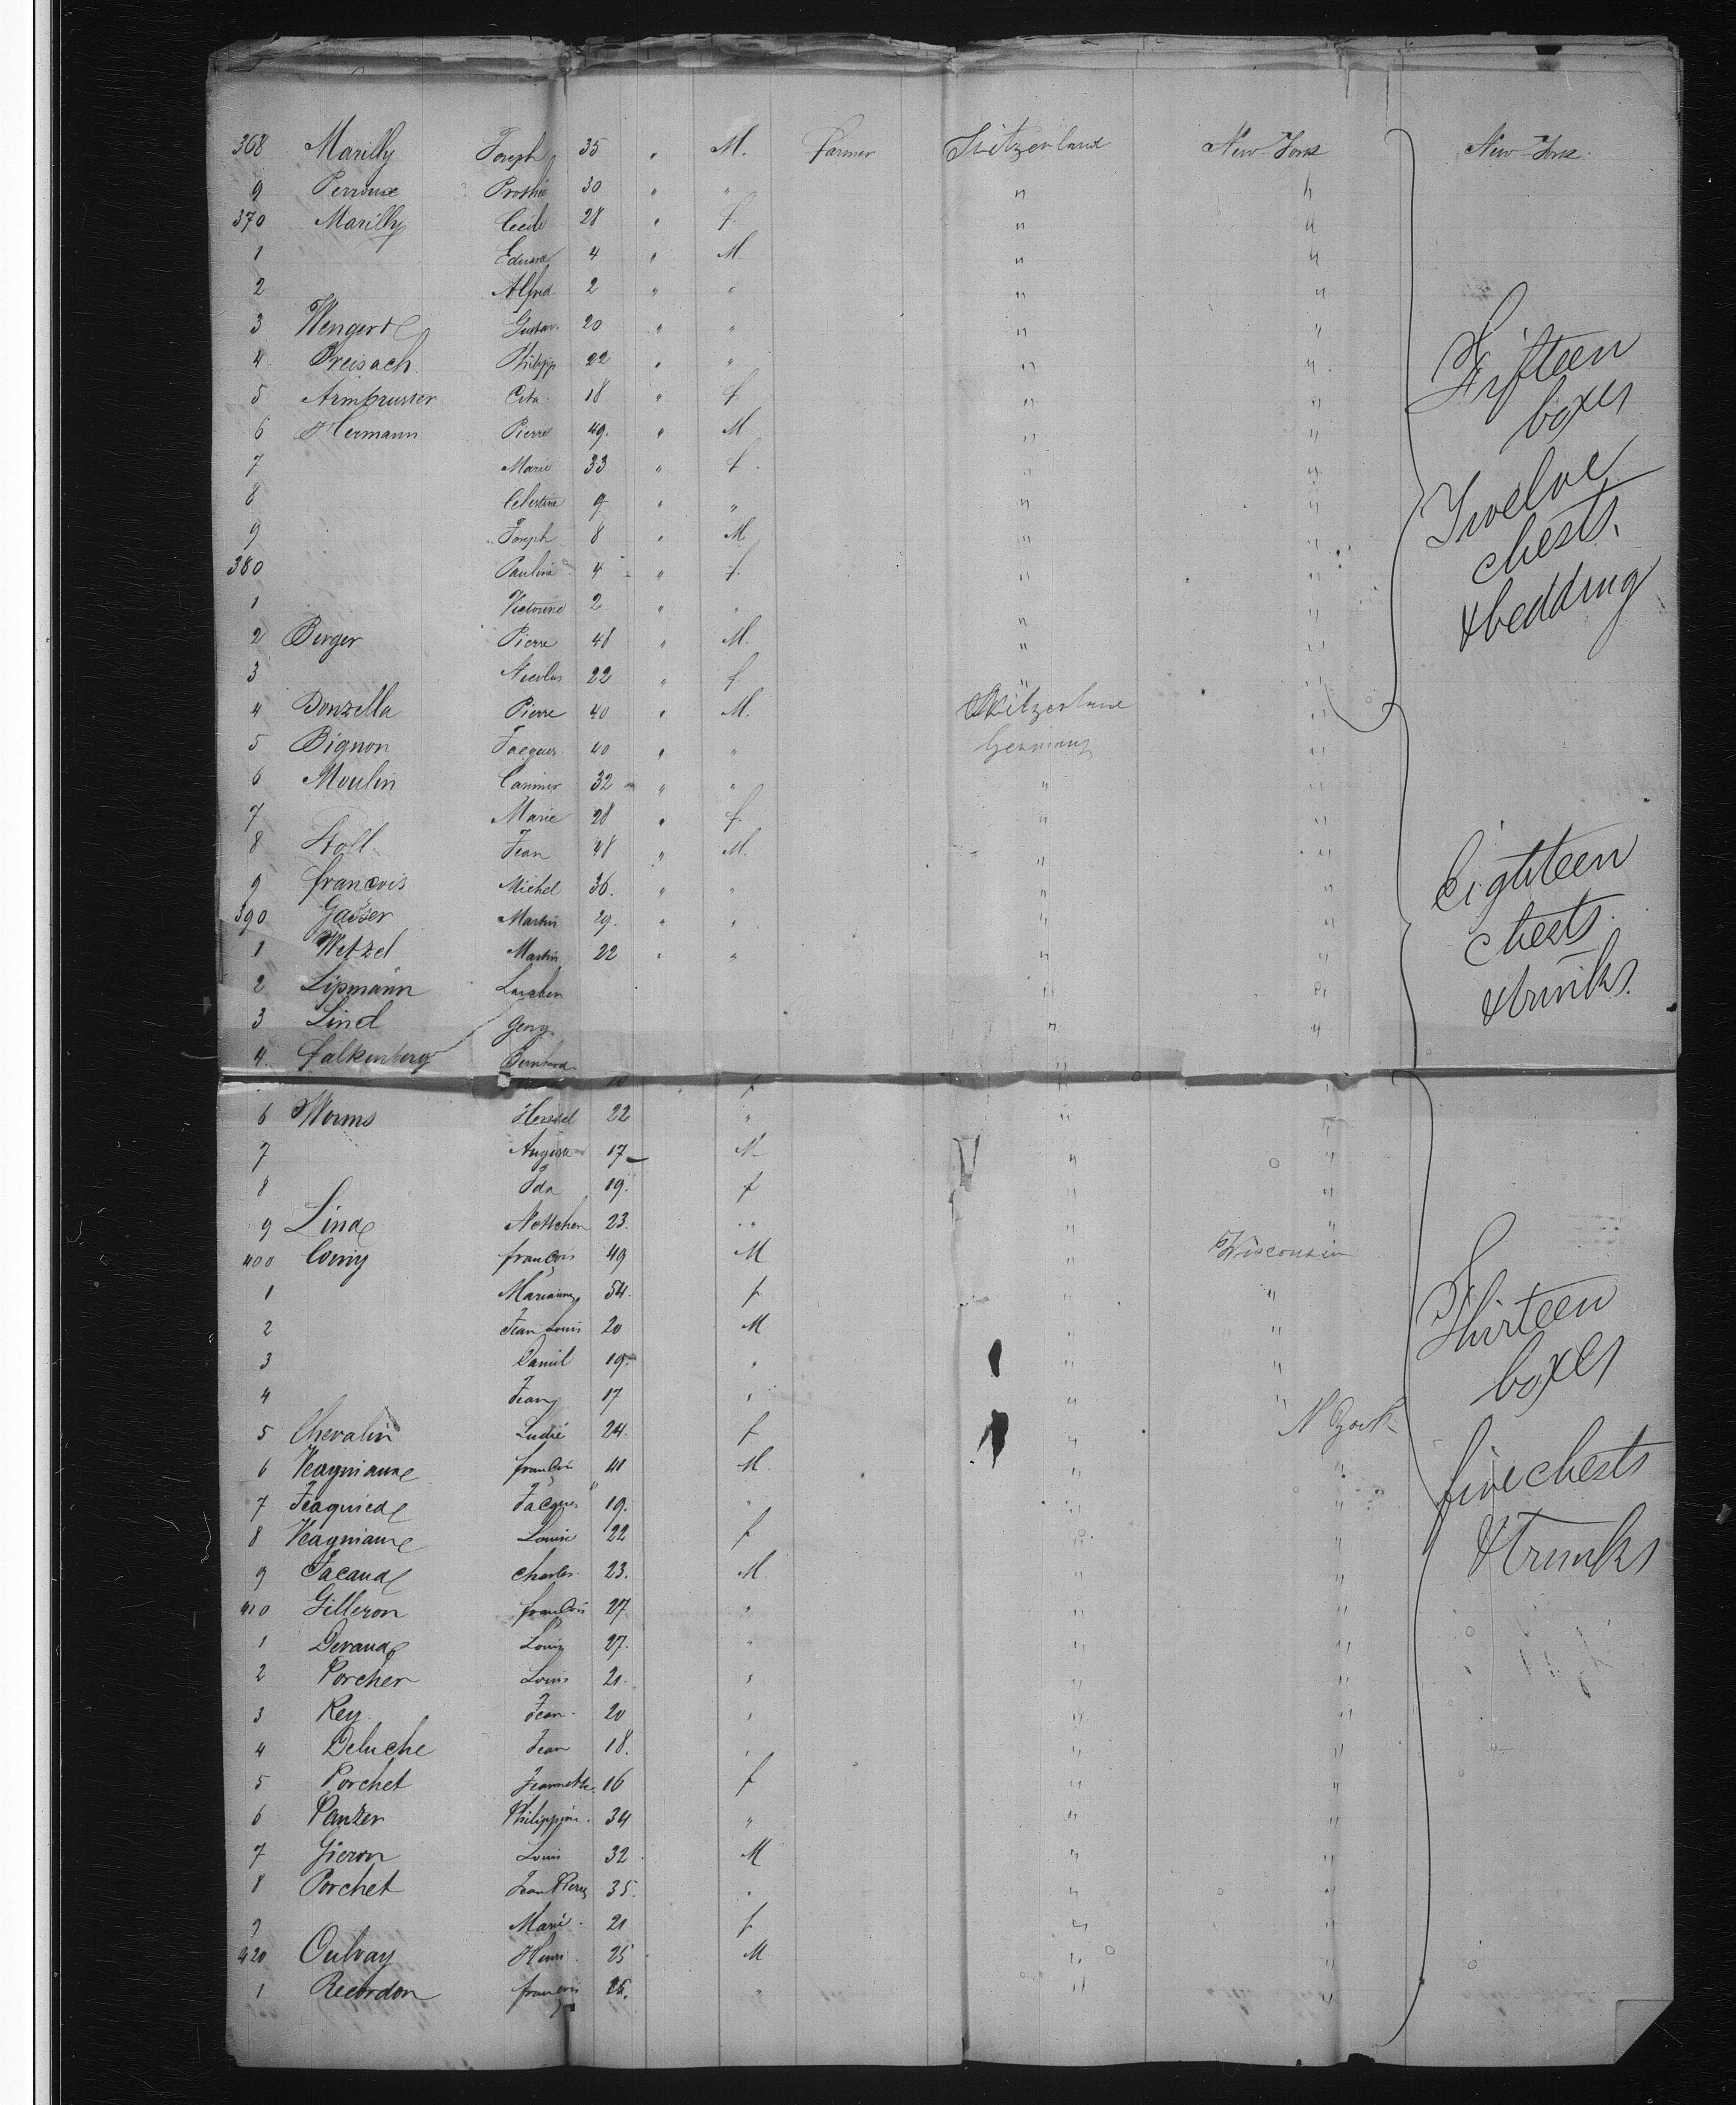 368 Marilly Joseph 35 " M. Farmer Switzerland New-York New-York.
9 Perroux 30 " " " "
370 Marilly Cécile 28 " f. " "
1 Eduard 4 " M. " "
2 Alfred 2 " " " "
3 Gustav. 20 " " " "
4 Breisach Philipp 22 " " " "
5 Armbruster 18 " f " "
6 Hermann Pierre 49. " M " "
7 Marie 33 " f. " "
8 Celestine 9 " " " "
9 Joseph 8 " M " "
380 Pauline 4 " f. " "
1 Victorine 2 " " " "
2 Berger Pierre 48 " M. " "
3 Nicolas 22 " f. " "
4 Donzella Pierre 40 " M. Switzerland "
5 Bignon Jacques 40 " " Germany "
6 Moulin Casimir 32 " " " "
7 Marie 28 " f. " "
8 Stoll Jean 48 " M. " "
9 francois Michel 36. " " " "
390 Gasser Martin 29. " " " "
1 Wetzel Martin 22 " " " "
2 Lipmann " "
3 Lind Georg. " "
4 falkenberg Bernhard "
Fifteen
boxes
Twelve
chests.
& bedding
Eighteen
chests.
& trunks.
6 Worms 22 " " "
7 17 M " "
8 Ida 19. f " "
9 Lind Nettchen 23. " " "
400 françois 49 M " Wisconsin
1 Marianne 54. f. " "
2 Jean Louis 20 M " "
3 Daniel 19. " " "
4 17 " " "
5 Chevalin 24. f " N York
6 françois 41 M. " "
7 Jacques 19. " " "
8 Louise 22 f " "
9 Jacaud Charles. 23. M " "
410 Gilleron françois 27 " " "
1 Devaud Louis 27. " " "
2 Porcher Louis 21. " " "
3 Rey. Jean. 20 " " "
4 Deluche Jean 18. " " "
5 Porchet Jeannette. 16 f " "
6 Panzer Philippine. 34 " " "
7 Gieron Louis 32 M " "
8 Porchet Jean Pierre 35. " " "
9 Marie. 21 f " "
420 Henri. 25 M " "
1 Recordon françois 26. " " "
Thirteen
boxes
five chests
& trunks